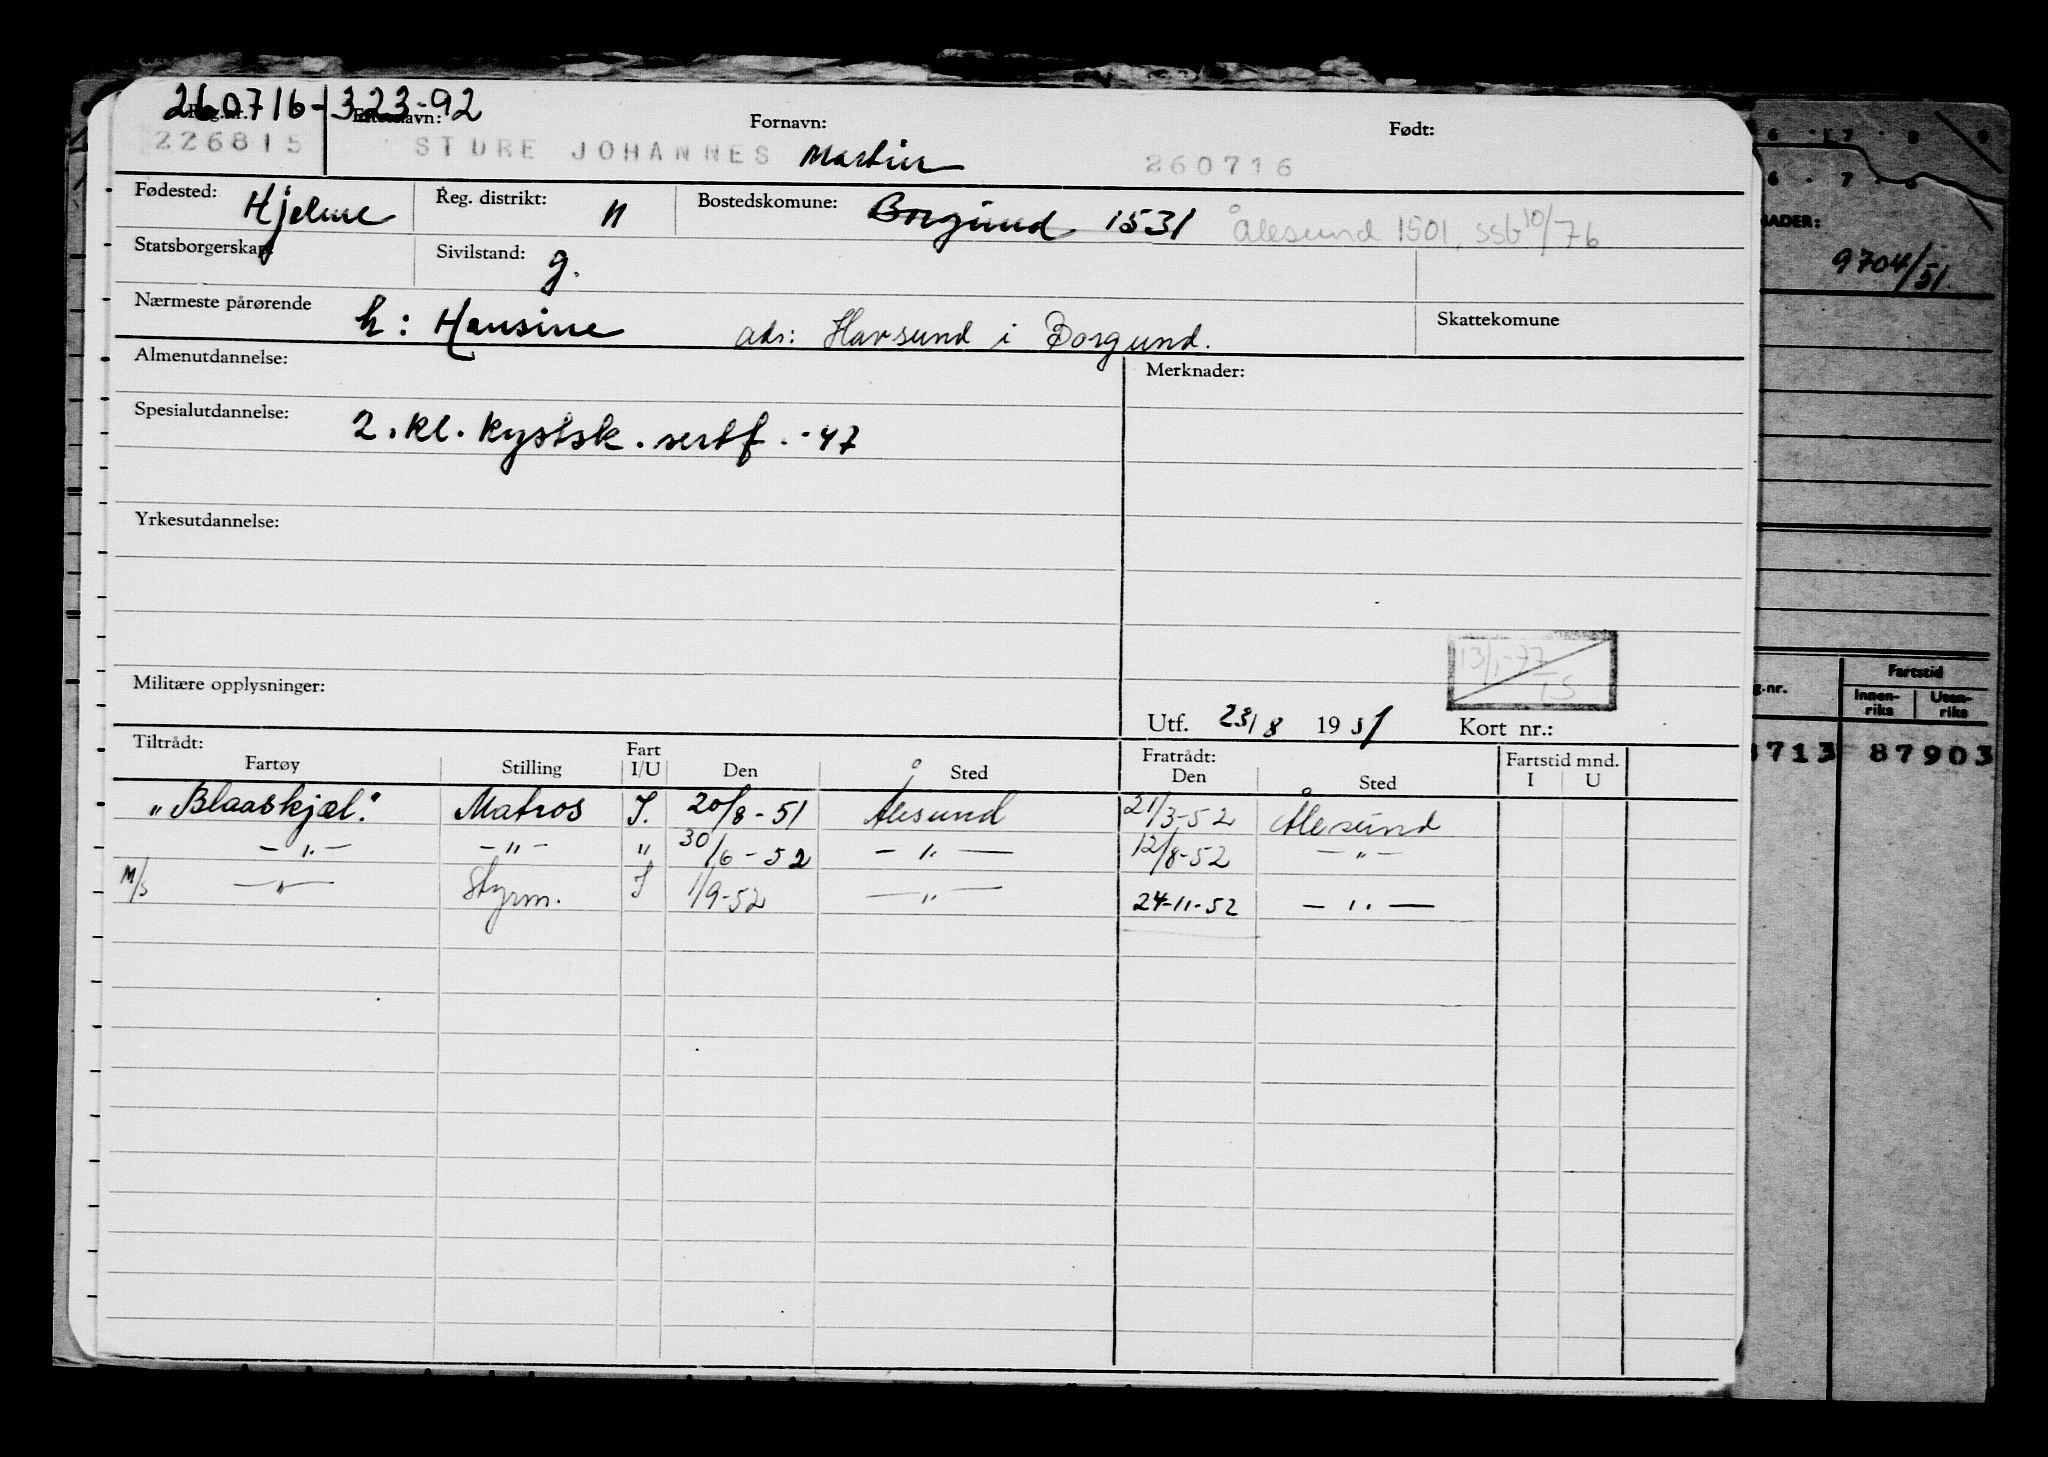 260716-32392
Reg.nr. Etternavn: Fornavn: Født:
226815 STURE JOHANNES Martin 260716
Fødested: Hjelme Reg. distrikt: N Bostedskomune: Borgund 1531 Ålesund 1501, ssb 10/76
Statsborgerskap: Sivilstand: g.
Nærmeste pårørende h: Hansine adr: Havsund i Borgund. Skattekomune
Almenutdannelse: Merknader:
Spesialutdannelse: 2. kl. kystsk. sertf. -47
Yrkesutdannelse:
13/1-77
Militære opplysninger:
Utf. 23/8 1951 Kort nr.:
Tiltrådt: Fratrådt:
Fartøy Stilling Fart I/U Den Sted Den Sted Fartstid mnd. I U
"Blaaskjæl." Matros I. 20/8-51 Ålesund 21/3-52 Ålesund
-"- -"- " 30/6-52 -"- 12/8-52 -"-
M/S -"- Styrm. I 1/9-52 -"- 24-11-52 -"-
6 . 7 . 8 . 9
6 . 7 . 8
NADER:
9704/51.
Fartstid
g.nr. Innenriks Utenriks
713 87903